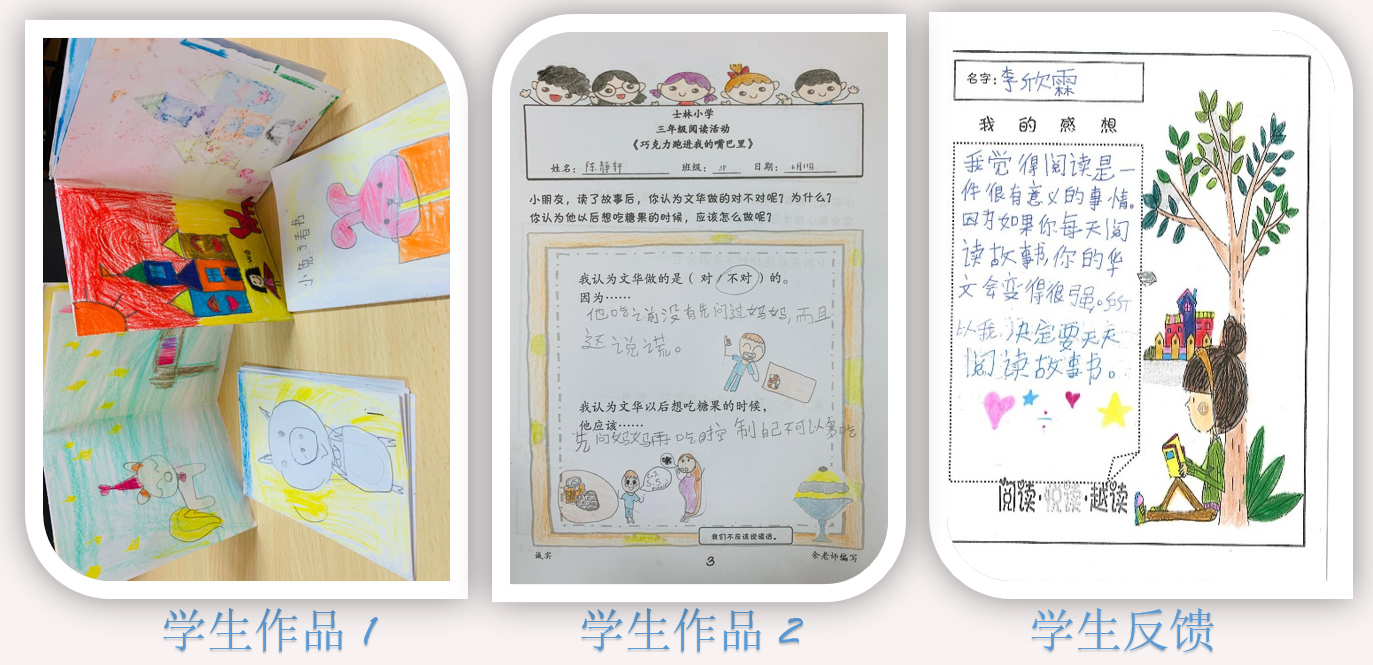 小兔子看书
士林小学
三年级阅读活动
《巧克力跑进我的嘴巴里》
姓名：陈静轩 班级：3P 日期：6月11日
小朋友，读了故事后，你认为文华做的对不对呢？为什么？
你认为他以后想吃糖果的时候，应该怎么做呢？
我认为文华做的是（对 不对）的。
因为……
他吃之前没有先问过妈妈，而且
还说谎。
我认为文华以后想吃糖果的时候，
他应该……
先问妈妈再吃时控制自己不可以多吃
我们不应该说谎话。
诚实
3
余老师编写
名字：李欣霖
我的感想
我觉得阅读是一
件很有意义的事情。
因为如果你每天阅
读故事书，你的华
文会变得很强。所
以我决定要天天
阅读故事书。
阅读·悦读·越读
学生作品 1
学生作品 2
学生反馈